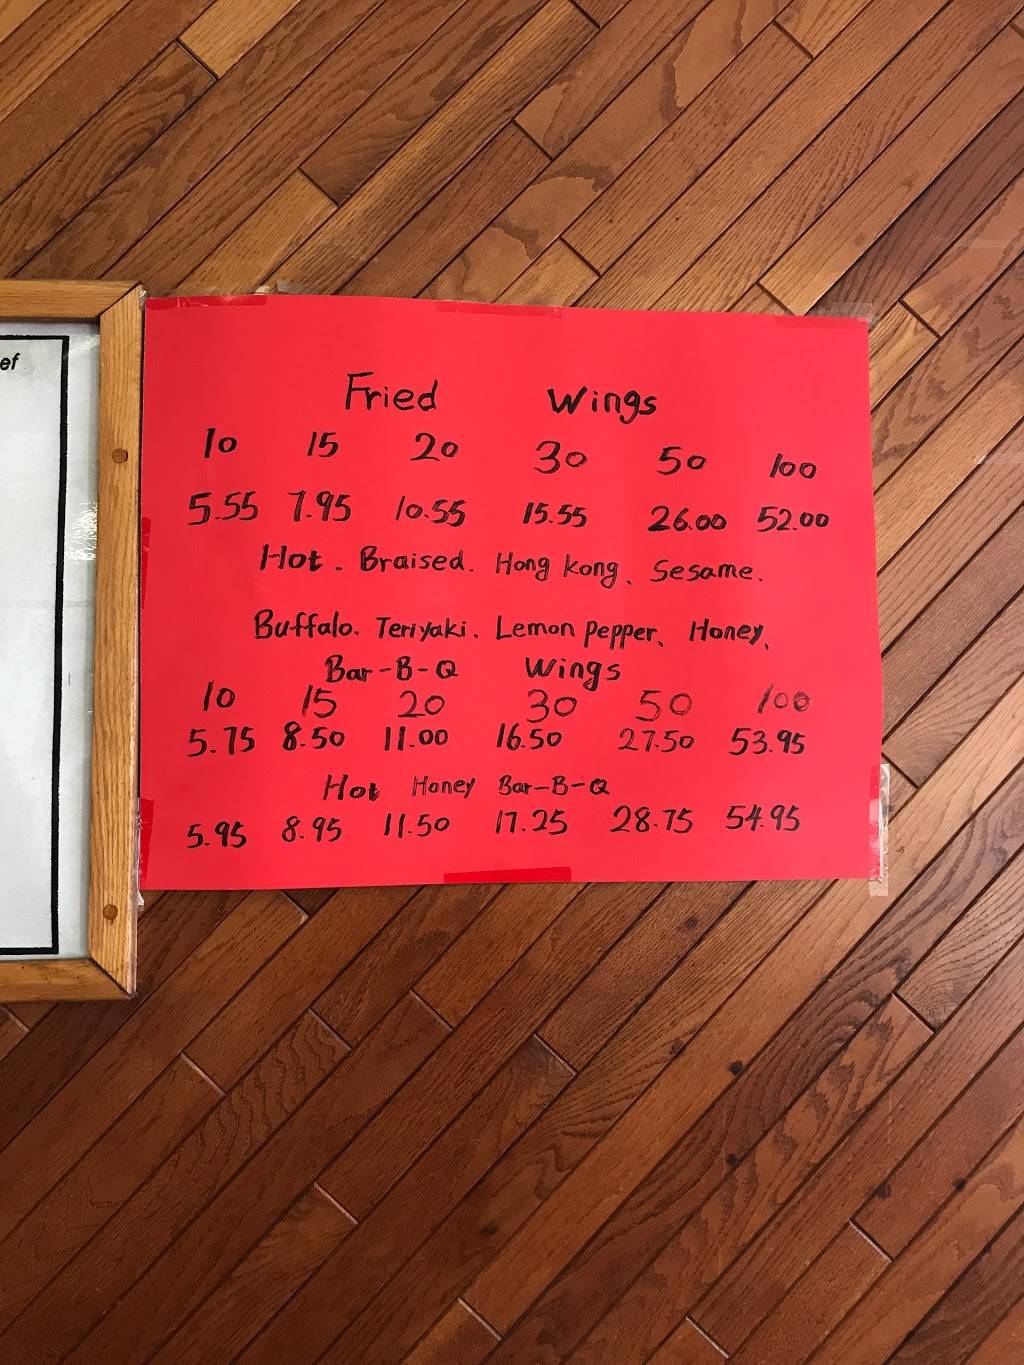 ef
Fried Wings
10 15 20 30 50 100
5.55 7.95 10.55 15.55 26.00 52.00
Hot. Braised. Hong Kong、Sesame.
Buffalo. Teriyaki. Lemon pepper、Honey、
Bar-B-Q Wings
10 15 20 30 50 100
5.75 8.50 11.00 16.50 27.50 53.95
Hot Honey Bar-B-Q
5.95 8.95 11.50 17.25 28.75 54.95